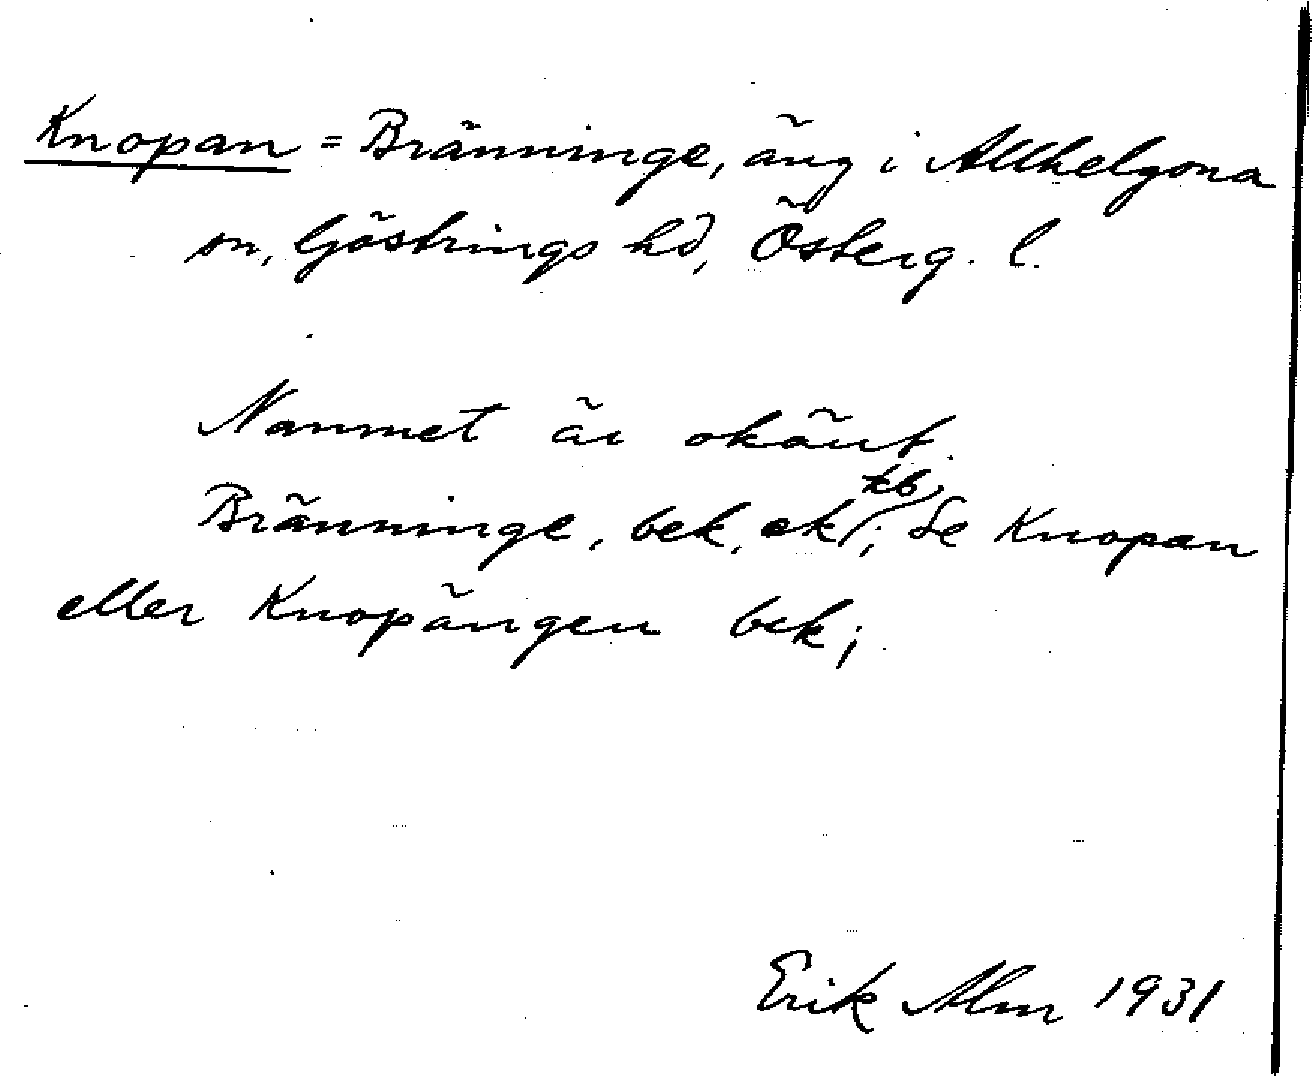 Knopan = Bränninge, äng i Allhelgona
sn, Göstrings hd, Österg. l.
Namnet är okänt.
Bränninge, bek, ek kb; Se Knopan
eller Knopängen bek;
Erik Alm 1931